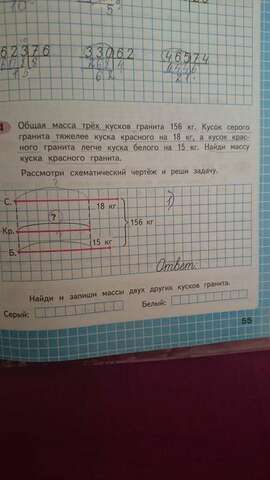 62376
33062
46574
Общая масса трёх кусков гранита 156 кг. Кусок серого
гранита тяжелее куска красного на 18 кг, а кусок крас-
ного гранита легче куска белого на 15 кг. Найди массу
куска красного гранита.
Рассмотри схематический чертёж и реши задачу.
?
С.
18 кг
1)
Кр.
?
156 кг
15 кг
Б.
Ответ:
Найди и запиши массы двух других кусков гранита.
Серый:
Белый:
55